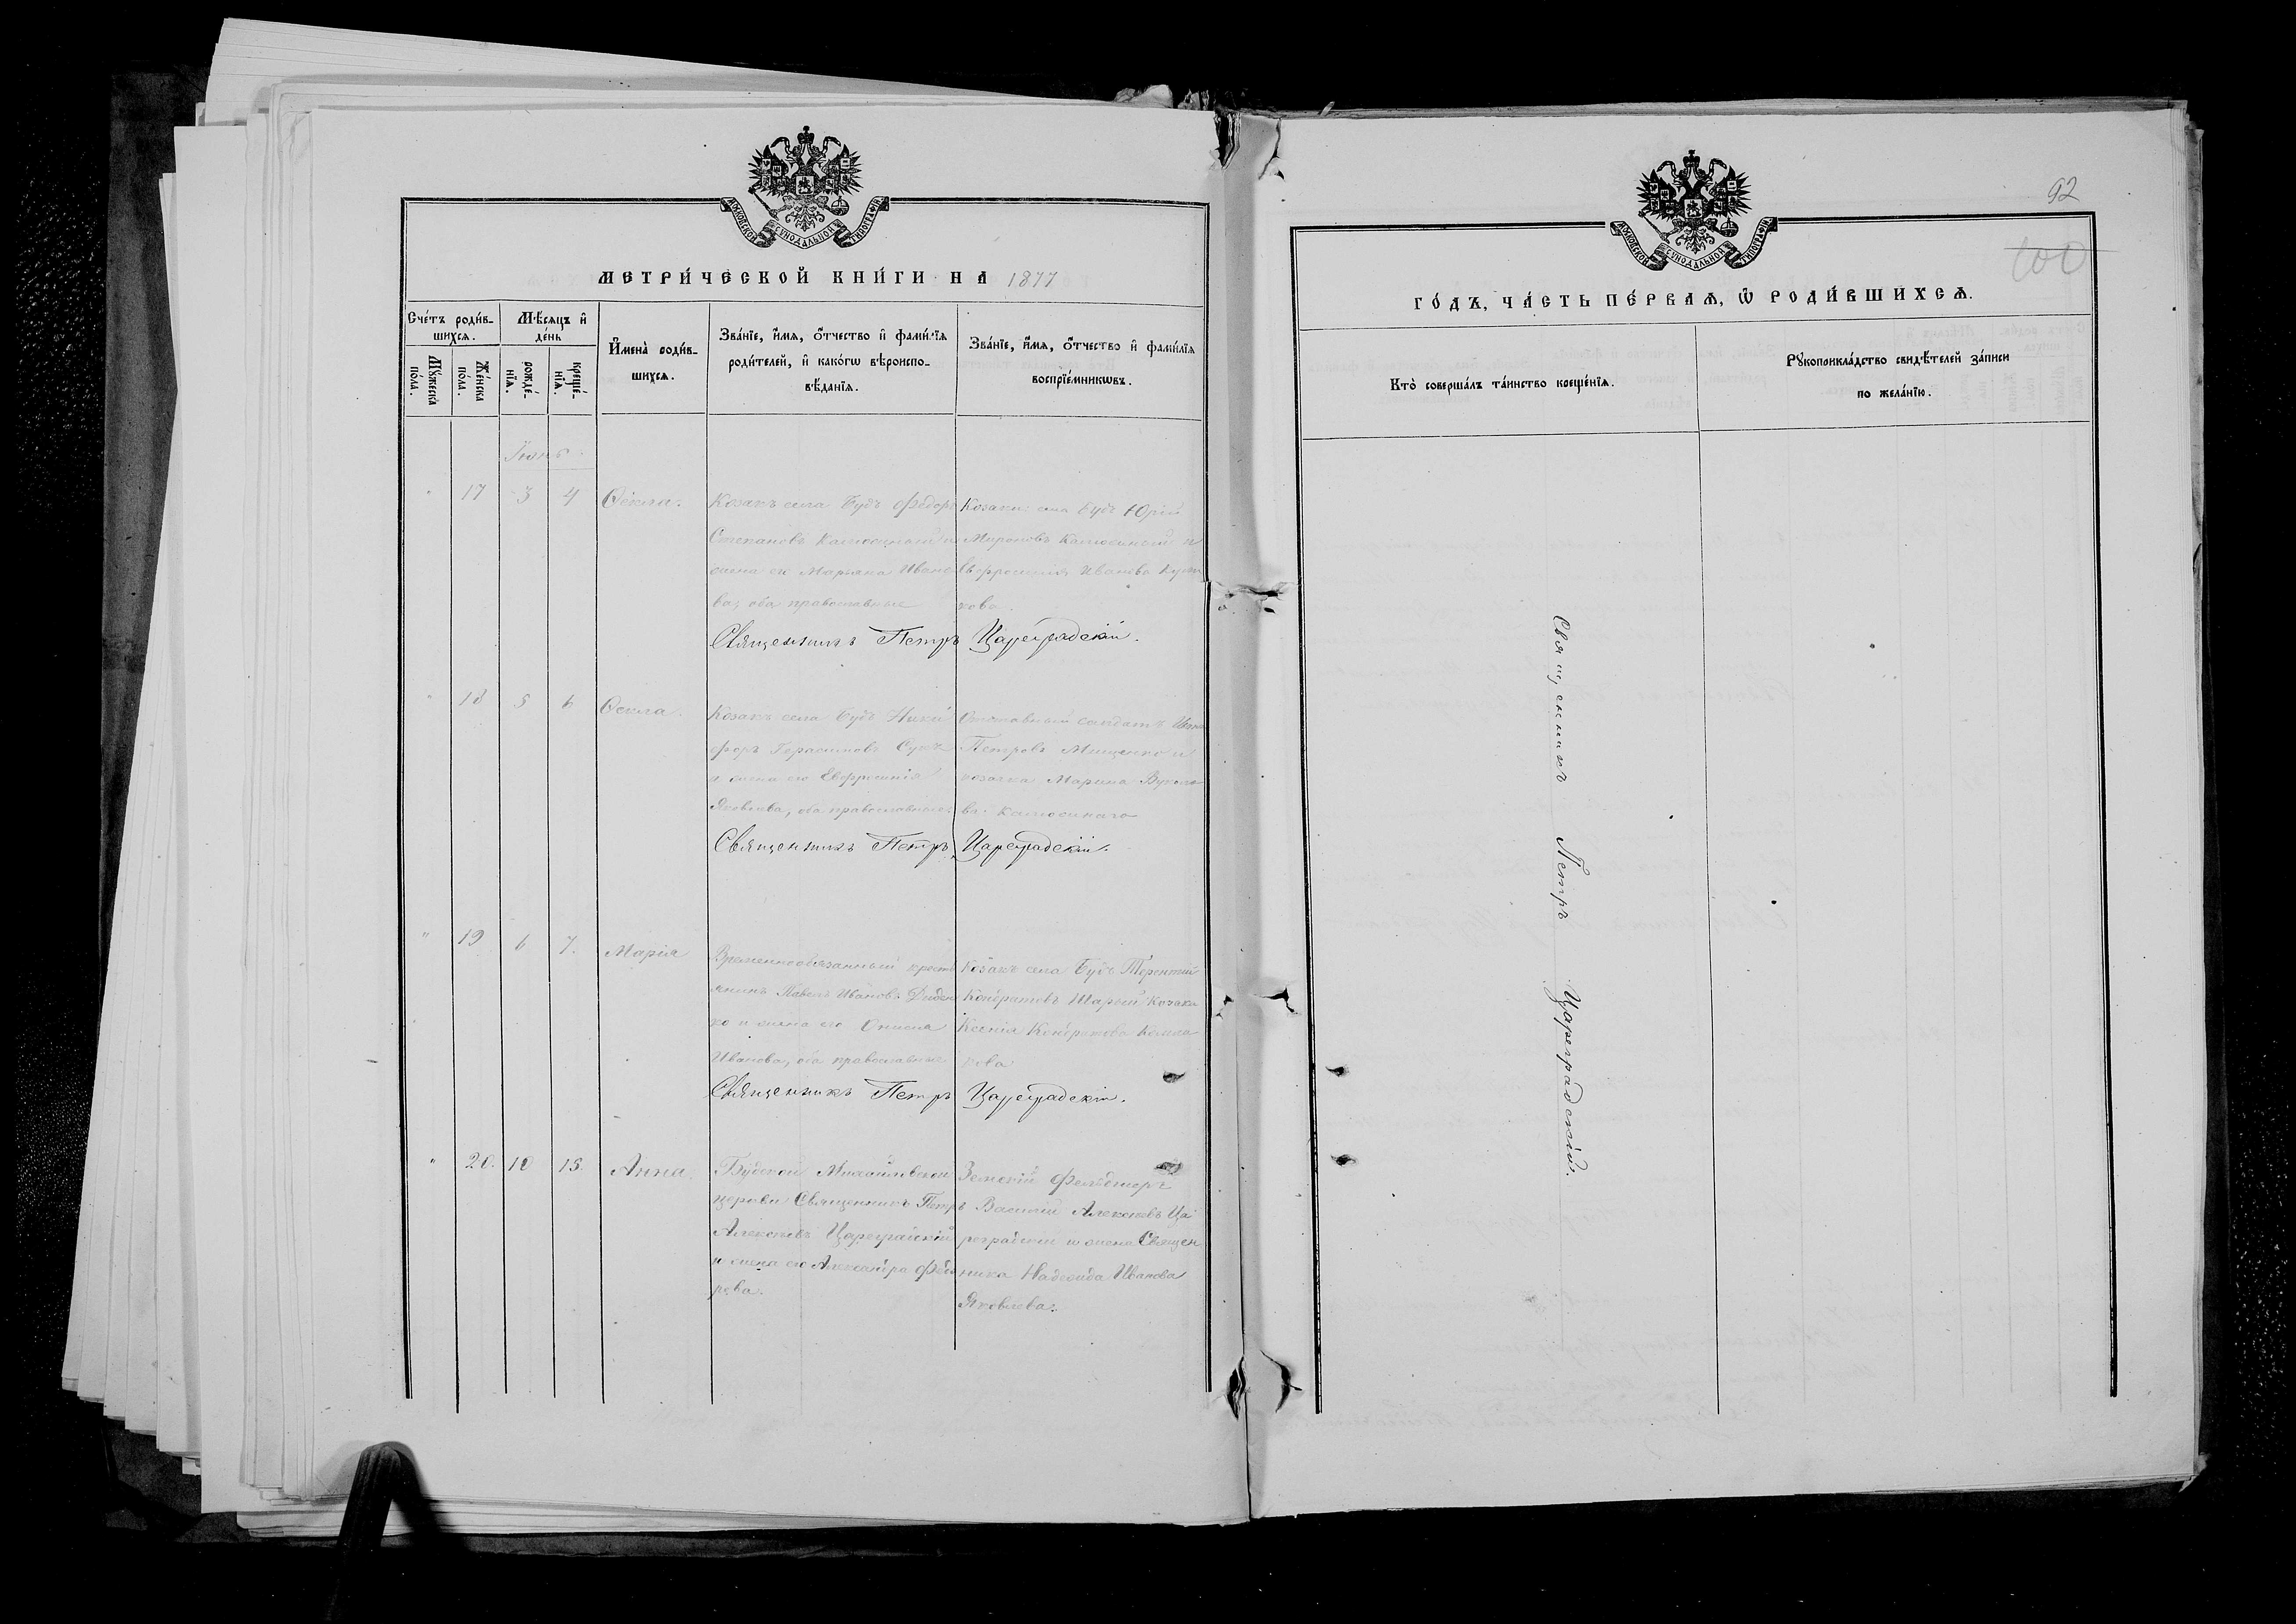 МОСКОВСКОЙ СѴНОДАЛЬНОЙ ТИПОГРАФІИ
МЕТРИ́ЧЕСКОЙ КНИ́ГИ НА 1877
Сче́тъ роди́в-
шихсѧ.
Мѣ́сѧцъ и҆
де́нь
Мꙋ́жеска
по́ла.
Же́нска
по́ла.
рожде́-
нїѧ.
креще́-
нїѧ.
И҆мена̀ роди́в-
шихсѧ.
Зва́нїе, и҆́мѧ, ѻ҆́тчество и҆ фами́лїѧ
роди́телей, и҆ како́гѡ вѣроиспо-
вѣ́данїѧ.
Зва́нїе, и҆́мѧ, ѻ҆́тчество и҆ фами́лїѧ
воспрїе́мникѡвъ.
Іюнь.
" 17 3 4 Ѳекла.
Козакъ села Будъ Федоръ
Степановъ и
жена его Марьяна Ивано
ва, оба православные
Козаки села Будъ Юрій
Мироновъ и
Евфросинія Иванова
кова.
Священникъ Петръ Цареградскій.
" 18 5 6 Ѳекла.
Козакъ села Будъ Ники
форъ Герасимовъ
и жена его Евфросинія
Яковлева, оба православные
Отставный солдатъ Иванъ
Петровъ Мищенко и
козачка Марина
ва.
Священникъ Петръ Цареградскій.
" 19 6 7. Марія
Временнообязанный кресть
янинъ Павелъ Ивановъ
ко и жена его Онисия
Иванова, оба православные
Козакъ села Будъ Терентий
Кондратовъ Шарый козака
Ксенія Кондратова
кова
Священникъ Петръ Цареградскій.
" 20. 10 15. Анна.
Будской Михайловской
церкви Священникъ Петръ
Алексѣевъ Цареградскій
и жена его Александра Федо
рова.
Земскій Фельдшеръ
Василій Алексѣевъ Ца
реградскій и жена Священ
ника Надежда Иванова
Яковлева.
92
100
МОСКОВСКОЙ СѴНОДАЛЬНОЙ ТИПОГРАФІИ
ГО́ДЪ, ЧА́СТЬ ПЕ́РВАѦ, Ѽ РОДИ́ВШИХСѦ.
Кто̀ соверша́лъ та́инство креще́нїѧ.
Рꙋкоприкла́дство свидѣ́телей за́писи
по жела́нїю.
Священникъ Петръ Цареградскій.